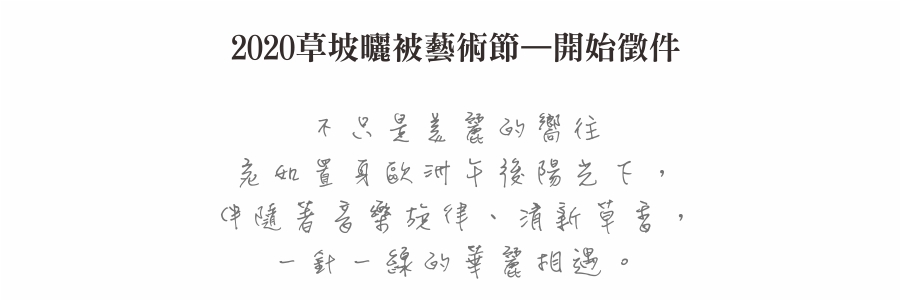 2020草坡曬被藝術節—開始徵件
不只是美麗的嚮往
宛如置身歐洲午後陽光下，
伴隨著音樂旋律、清新草香，
一針一線的華麗相遇。